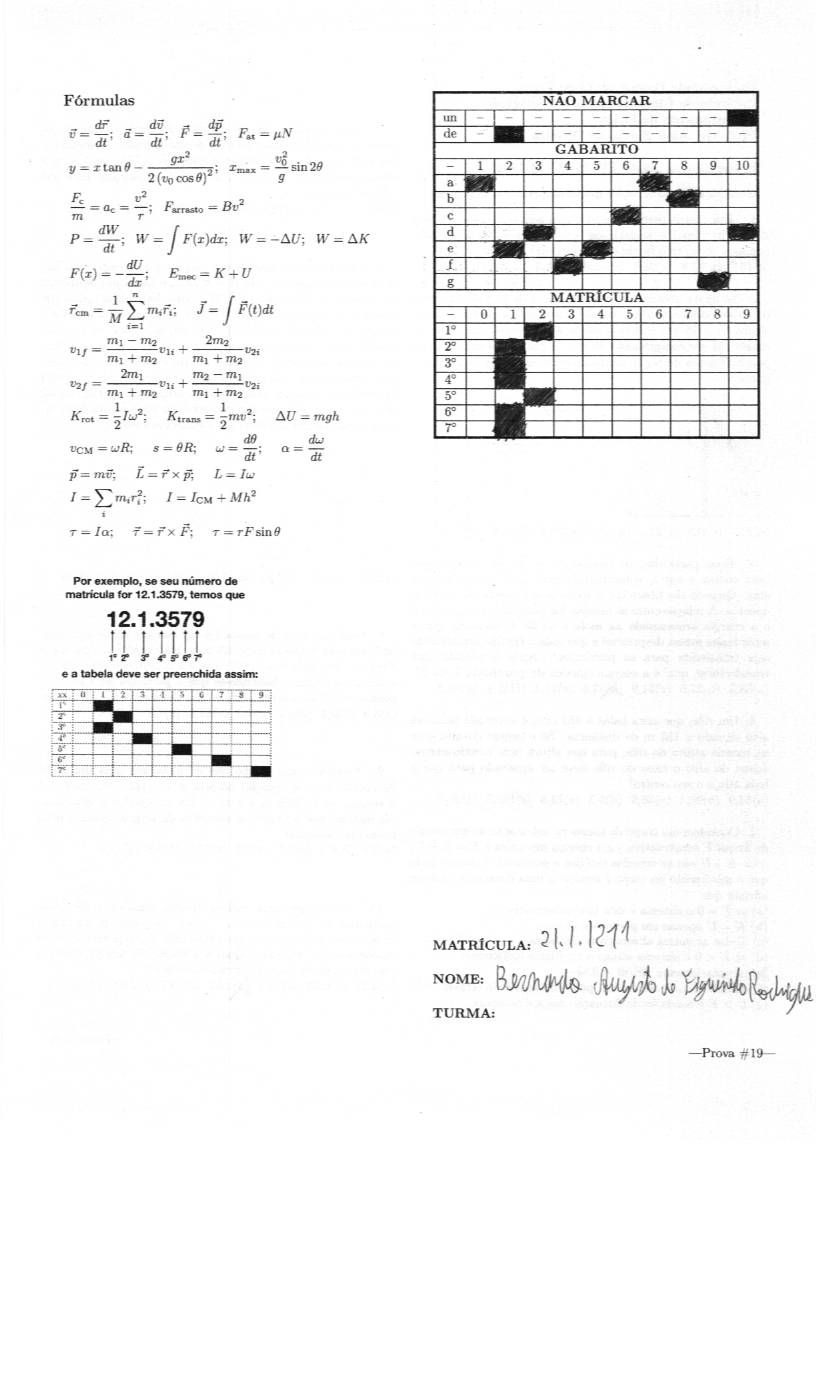 Fórmulas
v⃗ = dr⃗/dt; a⃗ = dv⃗/dt; F⃗ = dp⃗/dt; F_at = μN
y = x tan θ − gx²/2 (v₀ cos θ)²; x_max = v₀²/g sin 2θ
F_c/m = a_c = v²/r; F_arrasto = Bv²
P = dW/dt; W = ∫ F(x)dx; W = −ΔU; W = ΔK
F(x) = −dU/dx; E_mec = K + U
r⃗_cm = 1/M ∑_{i=1}^{n} m_i r⃗_i; J⃗ = ∫ F⃗(t)dt
v_1f = (m₁ − m₂)/(m₁ + m₂) v_1i + 2m₂/(m₁ + m₂) v_2i
v_2f = 2m₁/(m₁ + m₂) v_1i + (m₂ − m₁)/(m₁ + m₂) v_2i
K_rot = 1/2 Iω²; K_trans = 1/2 mv²; ΔU = mgh
v_CM = ωR; s = θR; ω = dθ/dt; α = dω/dt
p⃗ = mv⃗; L⃗ = r⃗ × p⃗; L = Iω
I = ∑_i m_i r_i²; I = I_CM + Mh²
τ = Iα; τ⃗ = r⃗ × F⃗; τ = rF sin θ
Por exemplo, se seu número de
matrícula for 12.1.3579, temos que
12.1.3579
1º 2º 3º 4º 5º 6º 7º
e a tabela deve ser preenchida assim:
xx 0 1 2 3 4 5 6 7 8 9
1º
2º
3º
4º
5º
6º
7º
NÃO MARCAR
un – – – – – – – – –
de – – – – – – – – –
GABARITO
– 1 2 3 4 5 6 7 8 9 10
a
b
c
d
e
f
g
MATRÍCULA
– 0 1 2 3 4 5 6 7 8 9
1º
2º
3º
4º
5º
6º
7º
MATRÍCULA: 21.1.1211
NOME: Bernardo Augusto de Figueiredo Rodrigues
TURMA:
—Prova #19—